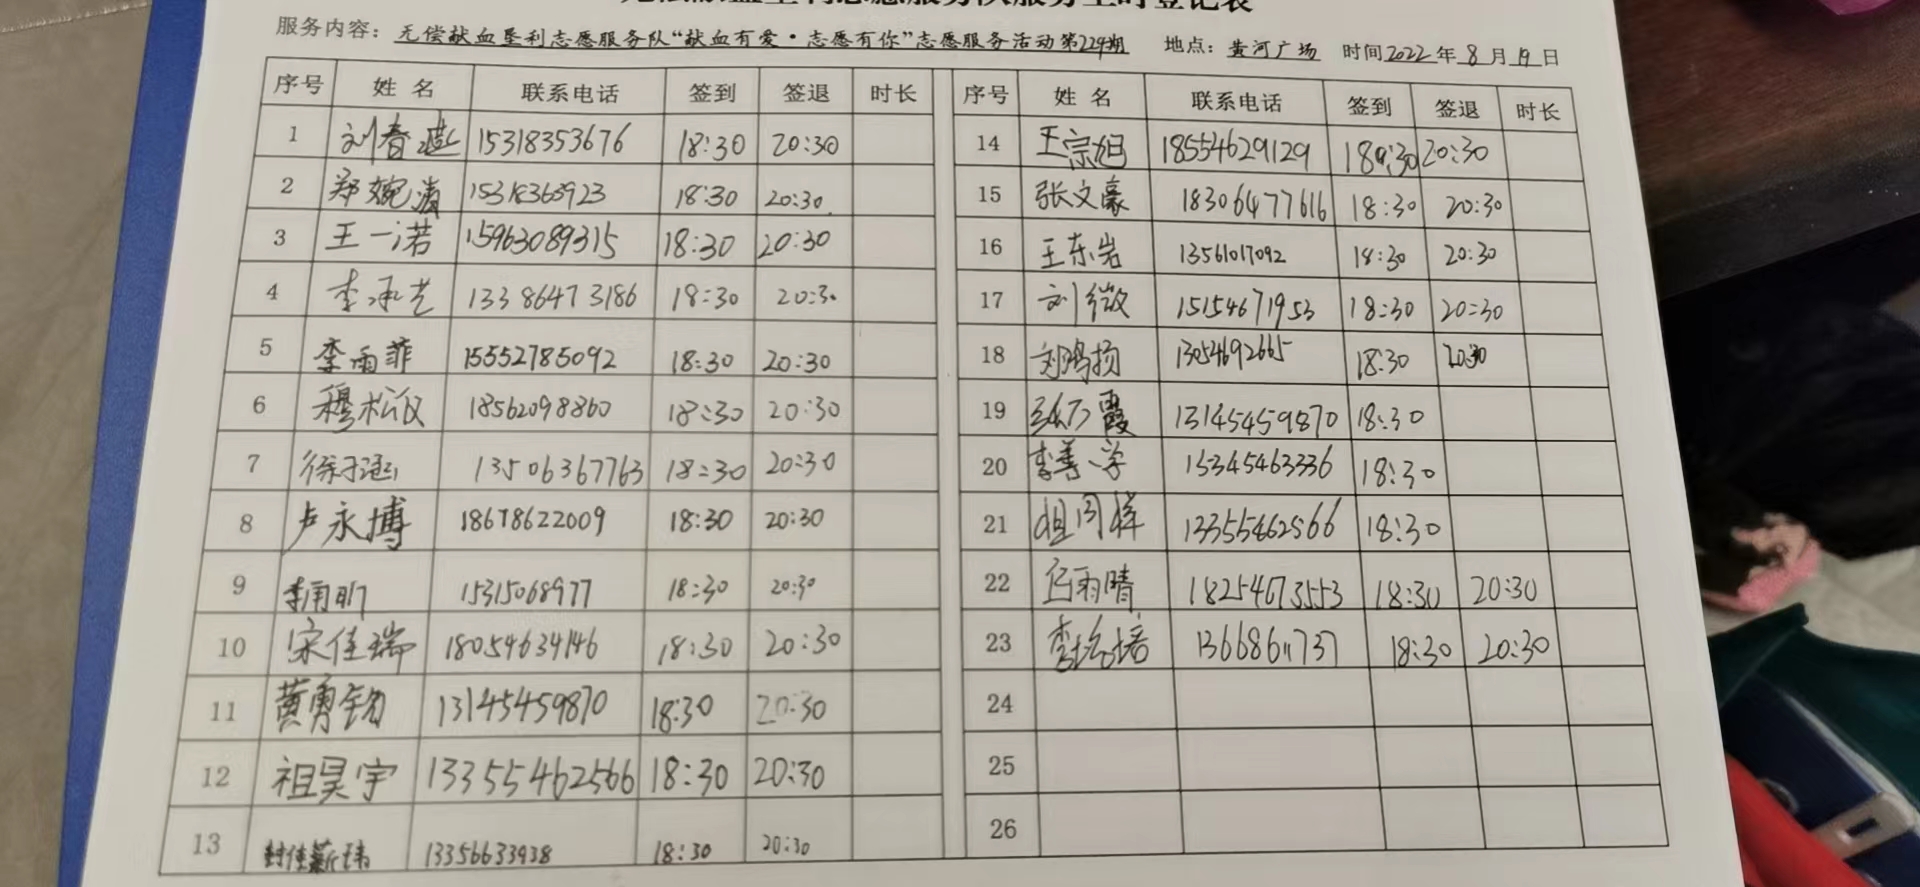 服务内容：无偿献血垦利志愿服务队“献血有爱·志愿有你”志愿服务活动第229期 地点：黄河广场 时间2022年8月19日
序号 姓名 联系电话 签到 签退 时长 序号 姓名 联系电话 签到 签退 时长
1 刘春燕 15318353676 18:30 20:30
2 郑婉清 15318360923 18:30 20:30
3 王一诺 15963089315 18:30 20:30
4 李承艺 13386473186 18:30 20:30
5 李雨菲 15552785092 18:30 20:30
6 穆松仪 18562098860 18:30 20:30
7 徐子涵 13506367763 18:30 20:30
8 卢永博 18678622009 18:30 20:30
9 15315068977 18:30 20:30
10 宋佳瑞 18054634146 18:30 20:30
11 黄勇钧 13145459870 18:30 20:30
12 祖昊宇 13355462566 18:30 20:30
13 封佳薪玮 13356633938 18:30 20:30
14 王宗旭 18554629129 18:30 20:30
15 张文豪 18306477616 18:30 20:30
16 王东岩 13561017092 18:30 20:30
17 刘微 15154671953 18:30 20:30
18 刘鹏扬 13054692665 18:30 20:30
19 13145459870 18:30
20 李善学 15345463336 18:30
21 祖同祥 13355462566 18:30
22 雨晴 18254673553 18:30 20:30
23 李培培 13668611737 18:30 20:30
24
25
26